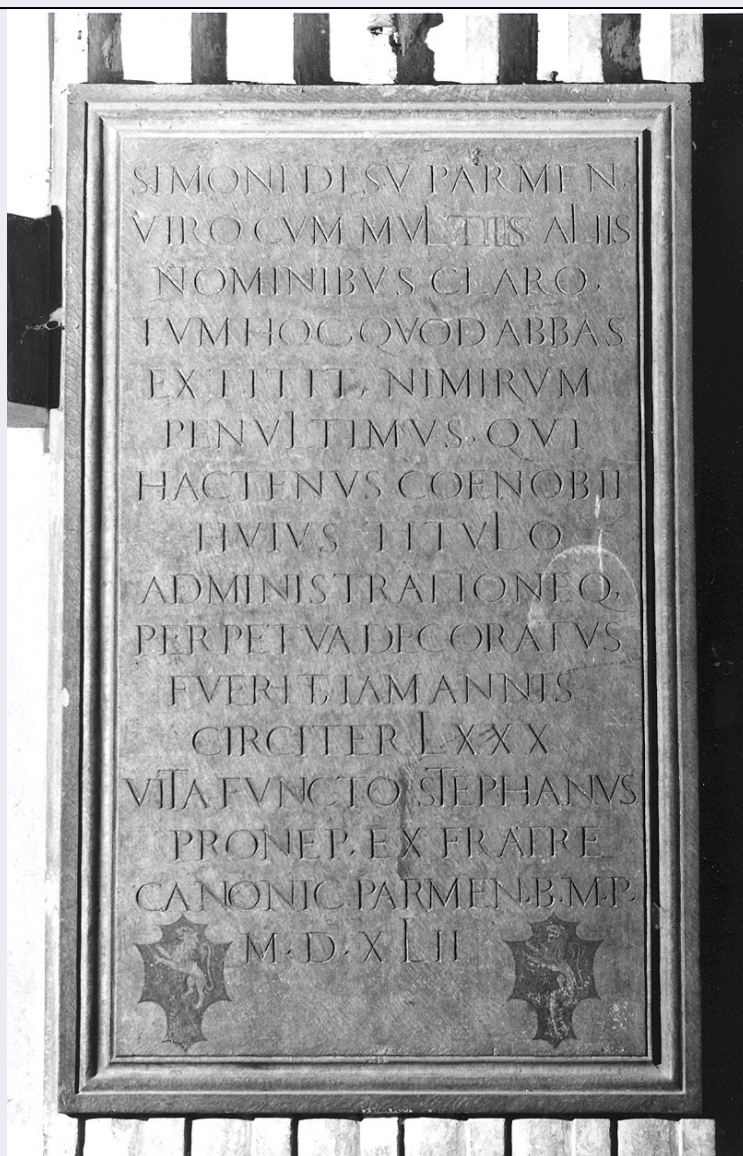 SIMONI DESV PARMEN.
VIRO CVM MVLTIIS ALIIS
NOMINIBVS CLARO,
TVM HOC, QVOD ABBAS
EXTITIT, NIMIRVM
PENVLTIMVS, QVI
HACTENVS COENOBII
HVIVS TITVLO
ADMINISTRATIONEQ,
PERPETVA DECORATVS
FVERIT, IAM ANNIS
CIRCITER LXXX
VITA FVNCTO STEPHANVS
PRONEP. EX FRATRE
CANONIC PARMEN. B. M. P.
M. D. XLII